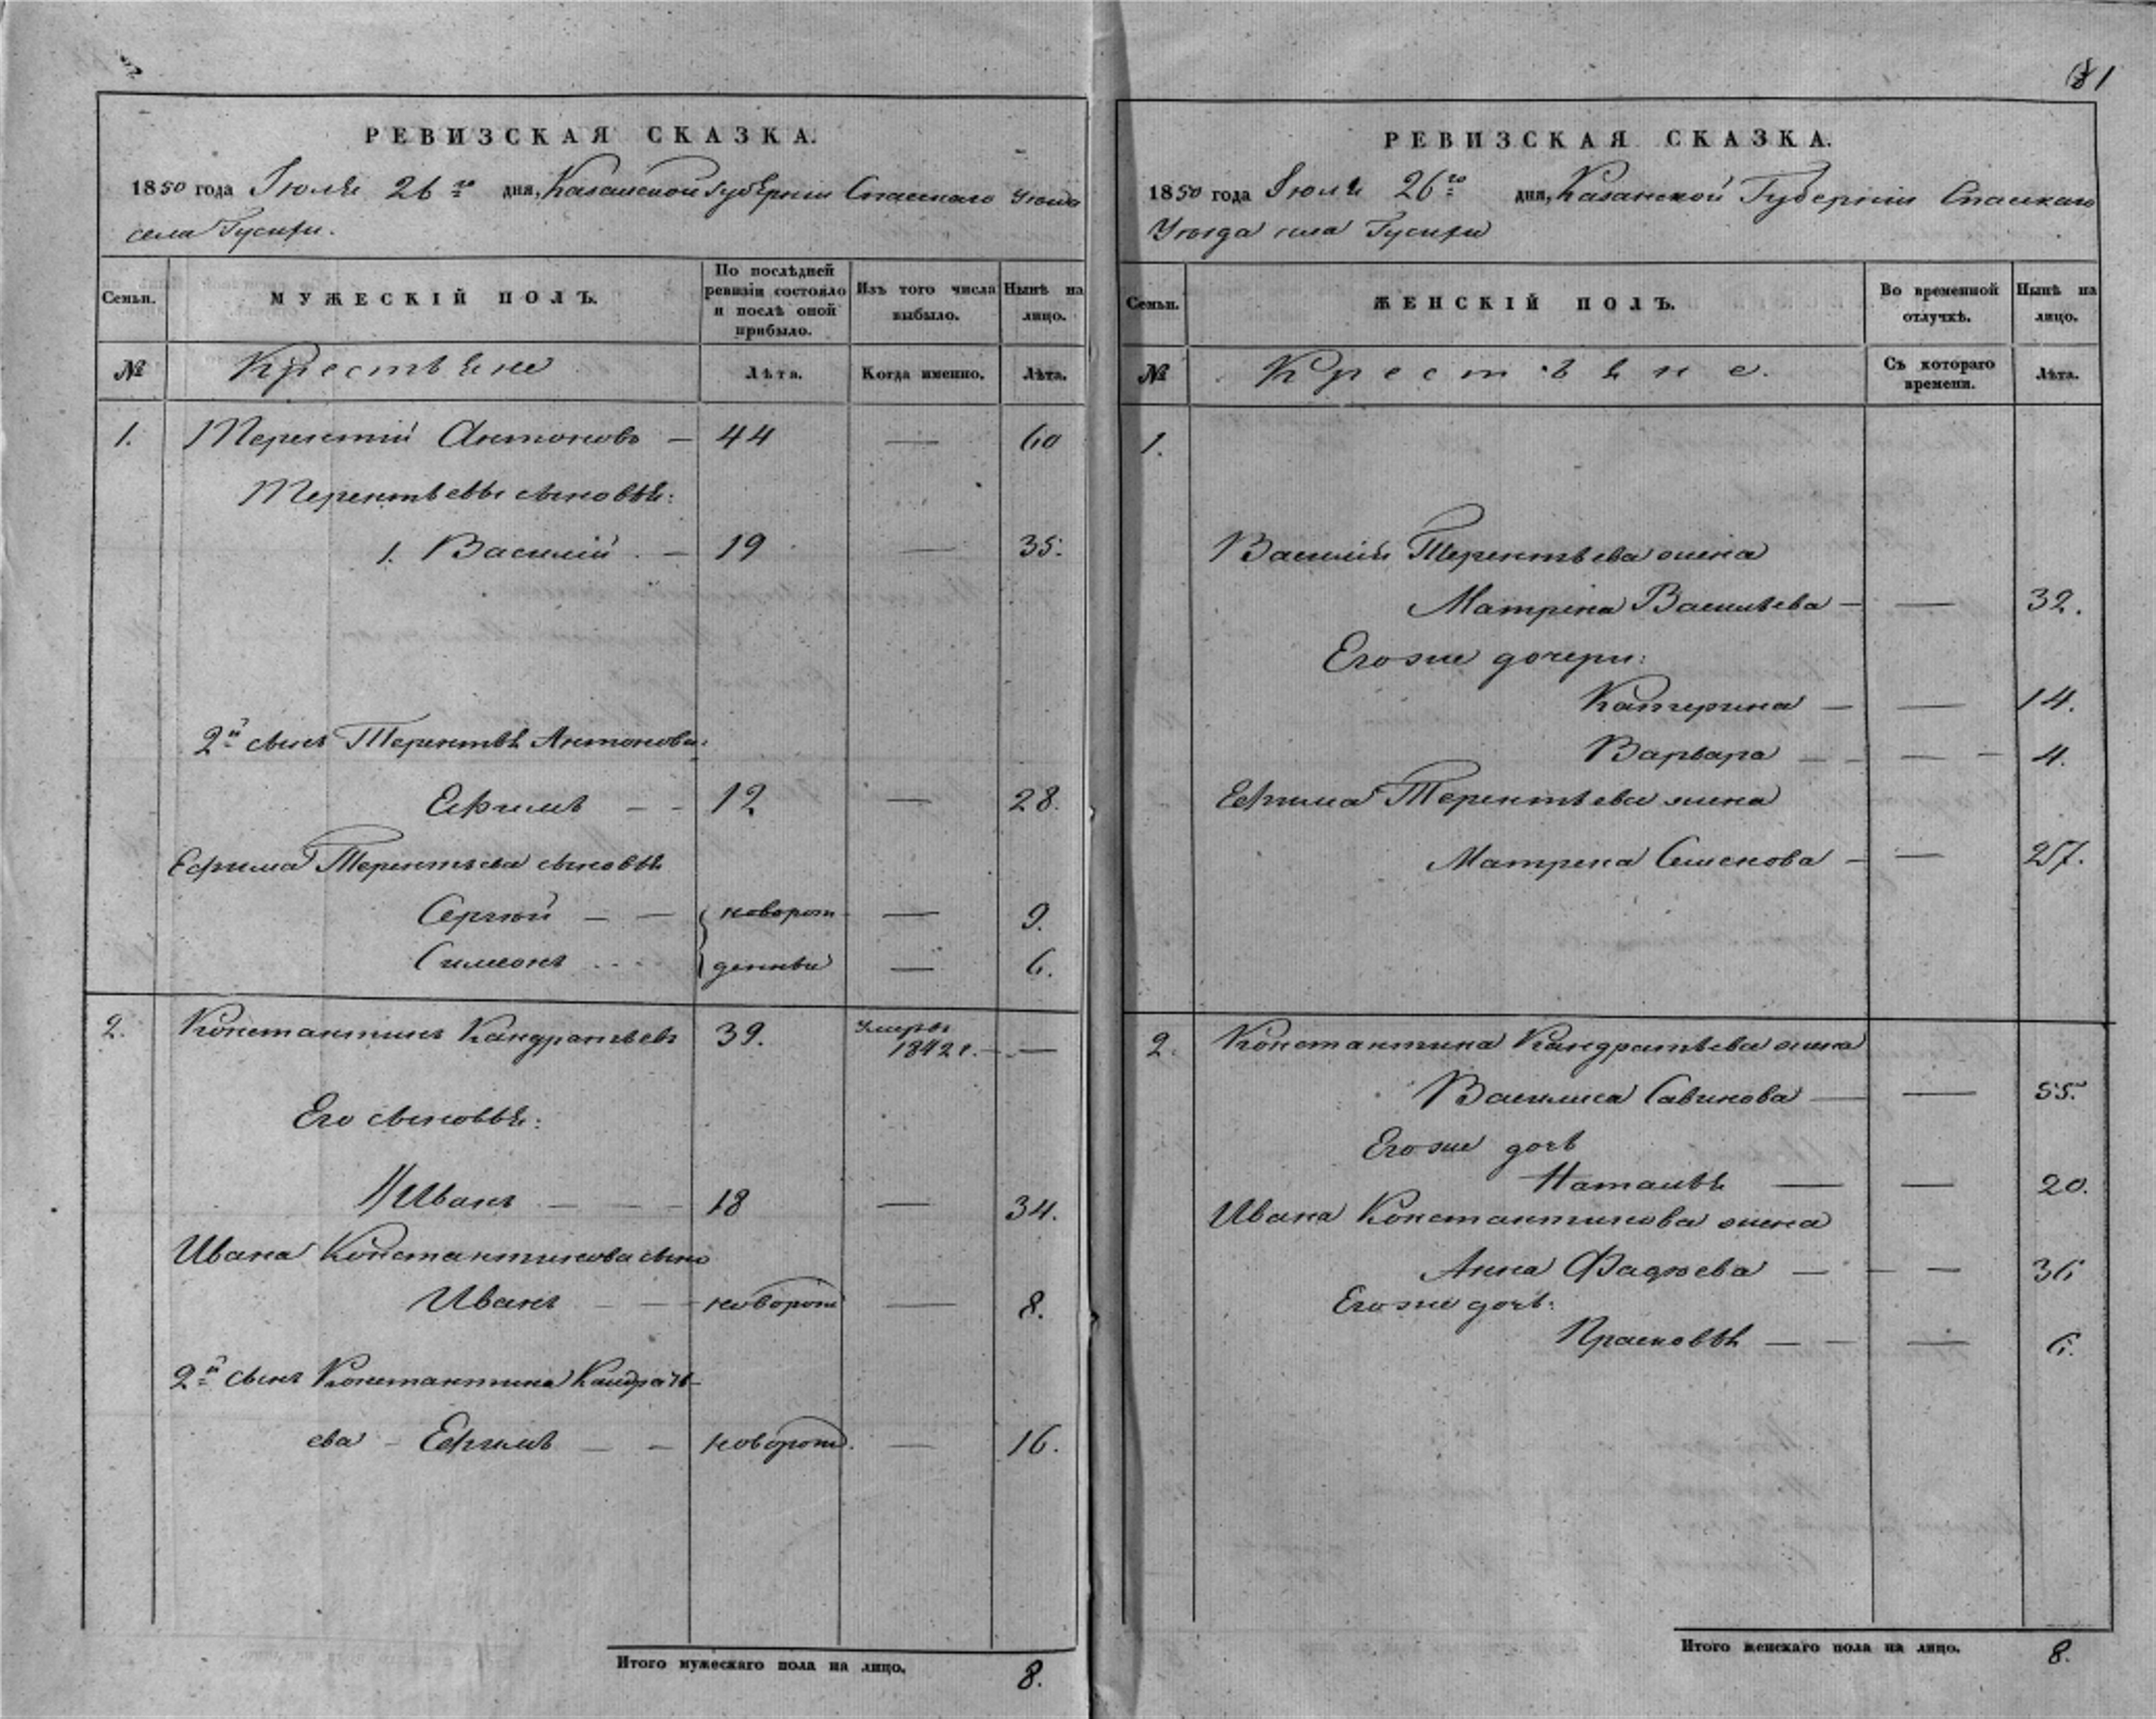 81
РЕВИЗСКАЯ СКАЗКА.
1850 года Іюля 26го дня, Казанской Губерніи Спасскаго Уѣзда
села Гусихи.
Семьи.
МУЖЕСКІЙ ПОЛЪ.
По послѣдней ревизіи состояло и послѣ оной прибыло.
Изъ того числа выбыло.
Нынѣ на лицо.
№
Крестьяне
Лѣта.
Когда именно.
Лѣта.
1. Терентій Антоновъ — 44 — 60
Терентьевы сыновья:
1. Василій — 19 — 35.
2й сынъ Терентья Антонова:
Ефимъ — - 12 — 28.
Ефима Терентьева сыновья
Сергѣй — — новорож — 9.
Симеонъ . . . . денныи — 6.
2. Константинъ Кандратьевъ 39. Умеръ 1842 г. — —
Его сыновья:
1) Иванъ — — - 18 — 34.
Ивана Константинова сынъ
Иванъ — — новорож — 8.
2й сынъ Константина Кандрать-
ева - Ефимъ — — новорож. — 16.
Итого мужескаго пола на лицо. 8.
РЕВИЗСКАЯ СКАЗКА.
1850 года Іюля 26го дня, Казанской Губерніи Спаскаго
Уѣзда села Гусихи
Семьи.
ЖЕНСКІЙ ПОЛЪ.
Во временной отлучкѣ.
Нынѣ на лицо.
№
Крестьяне.
Съ котораго времени.
Лѣта.
1.
Василія Терентьева жена
Матрена Васильева — — 32.
Его же дочери:
Катерина — — 14.
Варвара — - — - 4.
Ефима Терентьева жена
Матрена Семенова — — 27.
2. Константина Кандратьева жена
Василиса Савинова — — 55.
Его же дочь
Наталья — — 20.
Ивана Константинова жена
Анна Фадѣева — - — 36
Его же дочь:
Прасковья — - — 6.
Итого женскаго пола на лицо. 8.